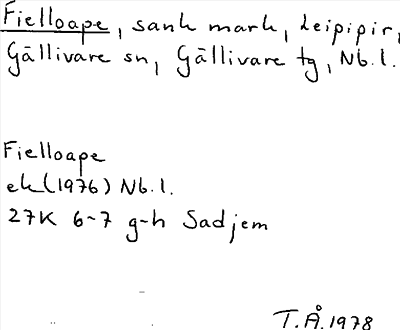 Fielloape, sank mark, Leipipir,
Gällivare sn, Gällivare tg, Nb.l.
Fielloape
ek (1976) Nb.l.
27K 6-7 g-h Sadjem
T.Å. 1978